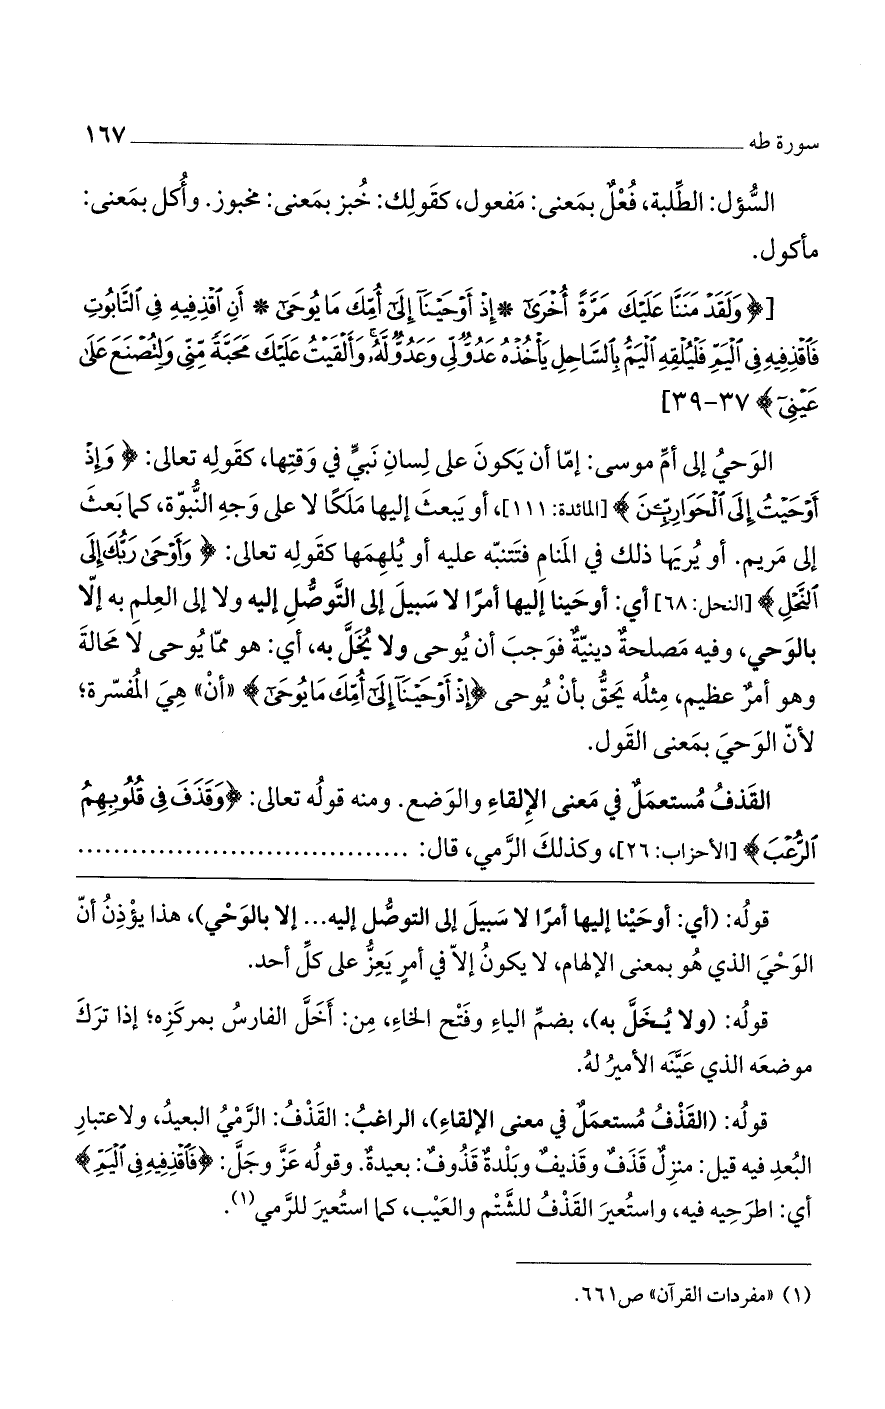 سورة طه ١٦٧
السُّؤل: الطِّلبة، فُعْلٌ بمَعنى: مَفعول، كقَولِك: خُبز بمَعنى: مخبوز. وأُكل بمَعنى:
مأكول.
[﴿وَلَقَدْ مَنَنَّا عَلَيْكَ مَرَّةً أُخْرَىٰٓ * إِذْ أَوْحَيْنَآ إِلَىٰٓ أُمِّكَ مَا يُوحَىٰٓ * أَنِ ٱقْذِفِيهِ فِي ٱلتَّابُوتِ
فَٱقْذِفِيهِ فِي ٱلْيَمِّ فَلْيُلْقِهِ ٱلْيَمُّ بِٱلسَّاحِلِ يَأْخُذْهُ عَدُوٌّ لِّي وَعَدُوٌّ لَّهُۥ وَأَلْقَيْتُ عَلَيْكَ مَحَبَّةً مِّنِّي وَلِتُصْنَعَ عَلَىٰ
عَيْنِيٓ﴾ ٣٧-٣٩]
الوَحيُ إلى أمِّ موسى: إمّا أن يَكونَ على لِسانِ نَبيٍّ في وَقتِها، كقَولِه تعالى: ﴿وَإِذْ
أَوْحَيْتُ إِلَى ٱلْحَوَارِيِّـۧنَ﴾ [المائدة: ١١١]، أو يَبعثَ إليها مَلَكًا لا على وَجهِ النُّبوّة، كما بَعثَ
إلى مَريم. أو يُريَها ذلك في المَنامِ فتَتنبّه عليه أو يُلهِمَها كقَولِه تعالى: ﴿وَأَوْحَىٰ رَبُّكَ إِلَى
ٱلنَّحْلِ﴾ [النحل: ٦٨] أي: أوحَينا إليها أمرًا لا سَبيلَ إلى التَّوصُّلِ إليه ولا إلى العِلمِ به إلّا
بالوَحيِ، وفيه مَصلحةٌ دينيّةٌ فوَجبَ أن يُوحى ولا يُخَلَّ به، أي: هو ممّا يُوحى لا مَحالةَ
وهو أمرٌ عظيم، مِثلُه يَحقُّ بأنْ يُوحى ﴿إِذْ أَوْحَيْنَآ إِلَىٰٓ أُمِّكَ مَا يُوحَىٰٓ﴾ «أنْ» هِيَ المُفسّرة؛
لأنّ الوَحيَ بمَعنى القَول.
القَذفُ مُستعمَلٌ في مَعنى الإلقاءِ والوَضع. ومنه قولُه تعالى: ﴿وَقَذَفَ فِي قُلُوبِهِمُ
ٱلرُّعْبَ﴾ [الأحزاب: ٢٦]، وكذلكَ الرَّمي، قال: ..................................
قولُه: (أي: أوحَيْنا إليها أمرًا لا سَبيلَ إلى التوصُّل إليه... إلا بالوَحْي)، هذا يؤْذِنُ أنّ
الوَحْيَ الذي هُو بمعنى الإلهام، لا يكونُ إلاّ في أمرٍ يَعِزُّ على كلِّ أحد.
قولُه: (ولا يُـخَلَّ به)، بضمِّ الياءِ وفَتْح الخاءِ، مِن: أَخَلَّ الفارسُ بمركَزِه؛ إذا ترَكَ
موضعَه الذي عَيَّنَه الأميرُ لهُ.
قولُه: (القَذْفُ مُستعمَلٌ في معنى الإلقاءِ)، الراغبُ: القَذْفُ: الرَّمْيُ البعيدُ، ولاعتبارِ
البُعدِ فيه قيل: منزِلٌ قَذَفٌ وقَذيفٌ وبَلْدةٌ قَذُوفٌ: بعيدةٌ. وقولُه عَزَّ وجَلَّ: ﴿فَٱقْذِفِيهِ فِي ٱلْيَمِّ﴾
أي: اطرَحِيه فيه، واستُعيرَ القَذْفُ للشَّتْم والعَيْب، كما استُعيرَ للرَّمي(١).
(١) «مفردات القرآن» ص٦٦١.